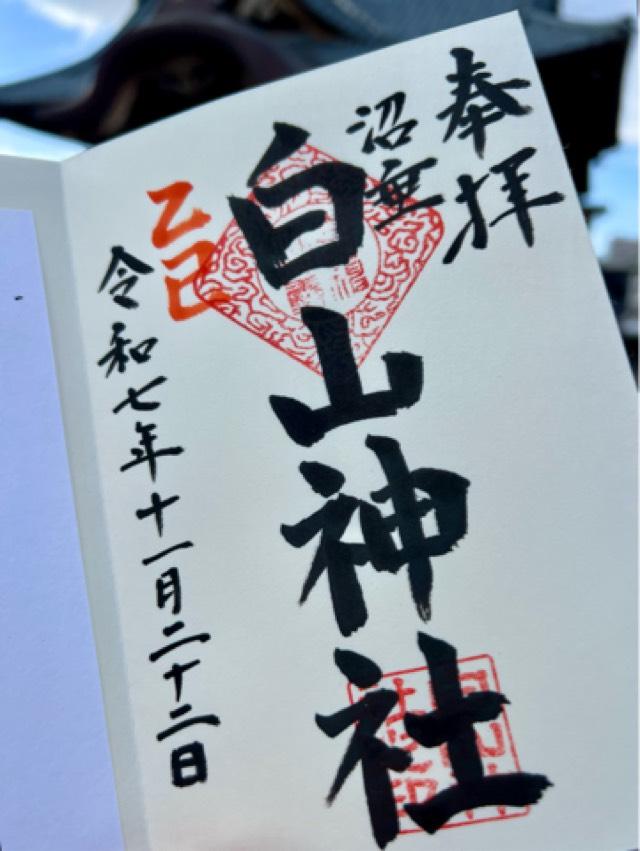 奉拝
沼垂
白山神社
乙巳
令和七年十一月二十二日